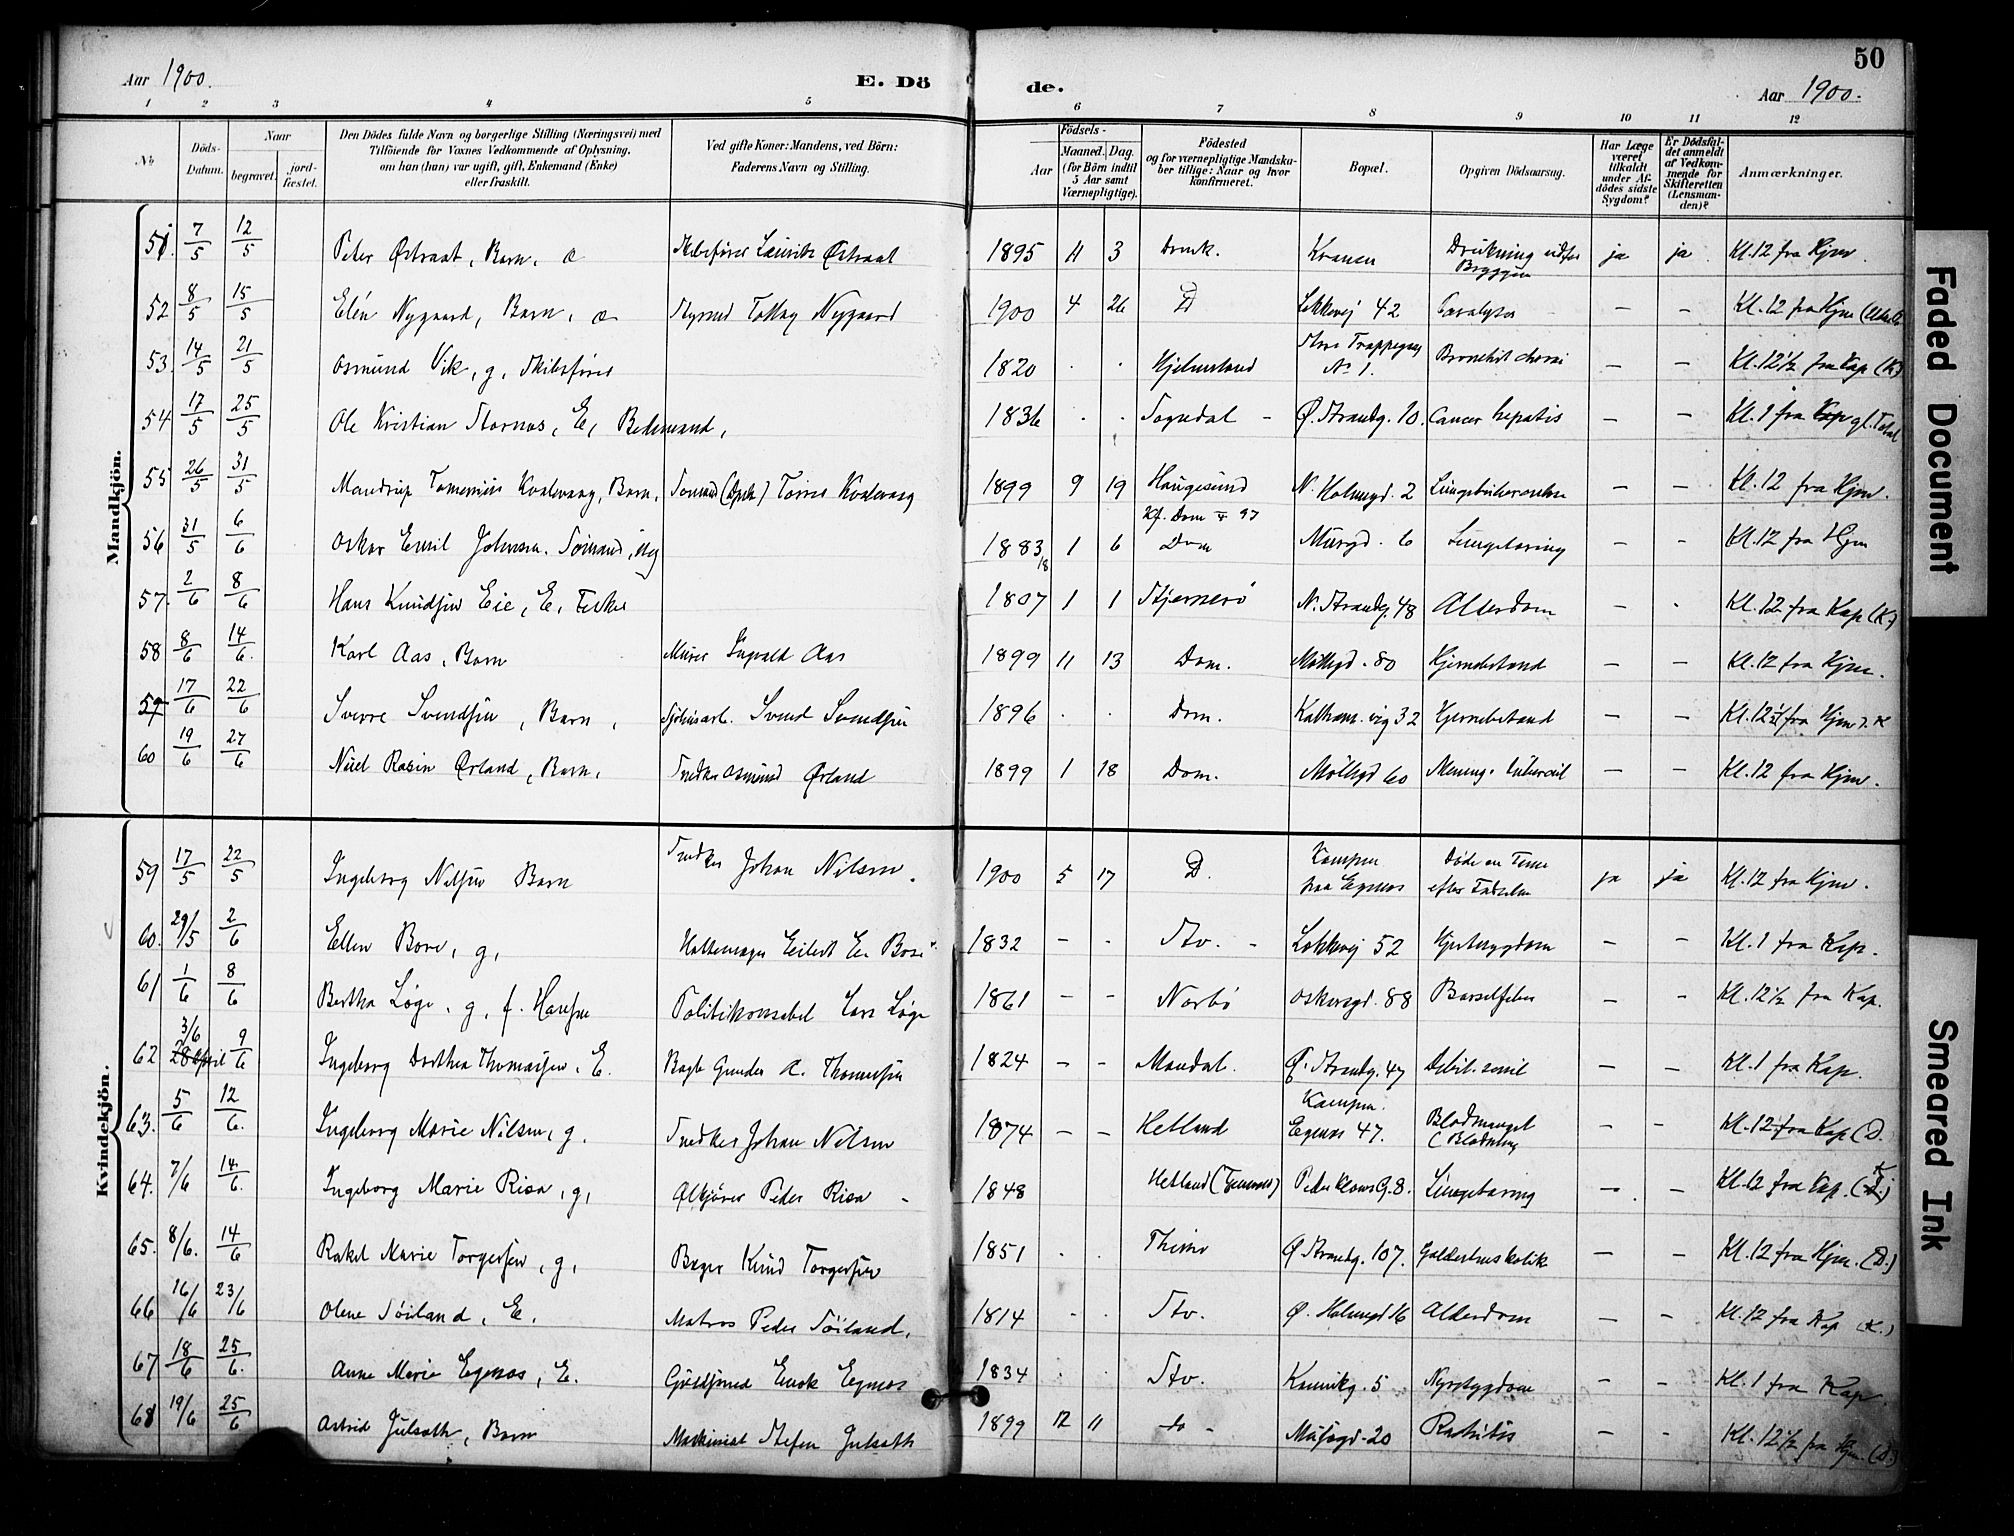 50
Aar 1900. E. Dö de. Aar 1900.
1 2 3 4 5 6 7 8 9 10 11 12
No Döds-Datum. Naar begravet. jordfæstet. Den Dödes fulde Navn og borgerlige Stilling (Næringsvei) med Tilföiende for Voxnes Vedkommende af Oplysning, om han (hun) var ugift, gift, Enkemand (Enke) eller fraskilt. Ved gifte Koner: Mandens, ved Börn: Faderens Navn og Stilling. Födsels- Aar Maaned. Dag. (for Börn indtil 5 Aar samt Værnepligtige). Födested og for værnepligtige Mandskaber tillige: Naar og hvor konfirmeret. Bopæl. Opgiven Dödsaarsag. Har Læge været tilkaldt under Afdödes sidste Sygdom? Er Dödsfaldet anmeldt af Vedkommende for Skifteretten (Lensmanden)? Anmærkninger.
Mandkjön.
51. 7/5 12/5 Peter Østraat, Barn, Skibsfører Lauritz Østraat 1895 11 3 Domk. Kranen Drukning udfor Bryggen ja ja Kl. 12 fra Hjm.
52 8/5 15/5 Elén Nygaard, Barn, Styrmd Tollag Nygaard 1900 4 26 D Lokkevej 42 Paralysis – – Kl. 12 fra Hjm
53. 14/5 21/5 Osmund Vik, g, Skibsfører 1820 . . Hjelmeland No 1. – – Kl. 12½ fra Kap (K)
54 17/5 25/5 Ole Kristian Stornos, E, Bedemand, 1836 . . Sogndal – Ø. Strandg. 10. Cancer hepatis – – Kl. 1 fra Kap gl.
55 26/5 31/5 Mandrup Kvalevaag, Barn, Sømand Kvalevaag 1899 9 19 Haugesund N. Holmegd. 2 Lungetuberculose – – Kl. 12 fra Hjm.
56 31/5 6/6 Oskar Emil Johnsen. Sømand, ug 1883 1/18 6 Kf. Dom 97 Dom Murgd. 6 Lungetæring – – Kl. 12 fra Hjm
57. 2/6 8/6 Hans Knudsen Eie, E, Fisker 1807 1 1 Stjernerö N. Strandg. 48 Alderdom – . Kl. 12 fra Kap (K)
58 8/6 14/6. Karl Aas, Barn Murer Ingvald Aas 1899 11 13 Dom. Møllegd. 80 Hjernebetænd – – Kl. 12 fra Hjm.
59 17/6 22/6 Sverre Svendsen, Barn, Svend Svendsen 1896 . . Dom. 32 Hjernebetænd – – Kl. 12½ fra Hjm
60 19/6 27/6 Ørland, Barn, Snedker Osmund Ørland 1899 1 18 Dom. Møllegd 60 Mening. tubercul – – Kl. 12 fra Hjm.
Kvindekjön.
59 17/5 22/5 Ingeborg Nilsen Barn Snedker Johan Nilsen. 1900 5 17 D. Kampen paa Egenes Døde en Time efter Fødselen ja ja Kl. 12 fra Hjm.
60. 29/5 2/6 Ellen Bore, g, Hattemager Bore 1832 – - Stv. – Lokkevej 52 Hjertesygdom – – Kl. 1 fra Kap.
61 1/6 8/6 Bertha Løge, g, f. Hansen Politikonstabel Lars Løge 1861 – – Nærbö Oskarsgd. 88 Barselfeber – – Kl. 12½ fra Kap.
62 3/6 28 April 9/6 Ingeborg Dorthea Thomassen, E. Gunder A. Thomassen 1824 – – Mandal. Ø. Strandg. 47 Debil. senil – – Kl. 1 fra Kap.
63. 5/6 12/6. Ingeborg Marie Nilsen, g. Snedker Johan Nilsen 1874 – – Hetland Kampen. Egenes 47. Blodmangel (Blødning – – Kl. 12 fra Kap (D.
64. 7/6 14/6. Ingeborg Marie Risa, g, Ølkjører Peder Risa – 1848 Hetland Peder Klowsg. 8. Lungetæring – . Kl. 12 fra Kap.
65. 8/6. 14/6 Rakel Marie Torgersen, g, Bager Knud Torgersen 1851 . . Thime Ø. Strandg. 107. Galdestenskolik – – Kl. 12 fra Hjm. (D.)
66 16/6 23/6 Olene Söiland, E. Matros Peder Söiland. 1814 . . Stv. Ø. Holmegd 16 Alderdom – – Kl. 12 fra Kap (K.)
67 18/6 25/6. Anne Marie Egenæs, E. Egenæs 1834 . . Stv. Kannikg. 5 Nyresygdom – – Kl. 1 fra Kap
68 19/6 25/6 Astrid Julseth, Barn Maskinist Stefen Julseth 1899 12 11 do – 20 Rachitis – – Kl. 12½ fra Hjm. (D.)
Faded Document
Smeared Ink